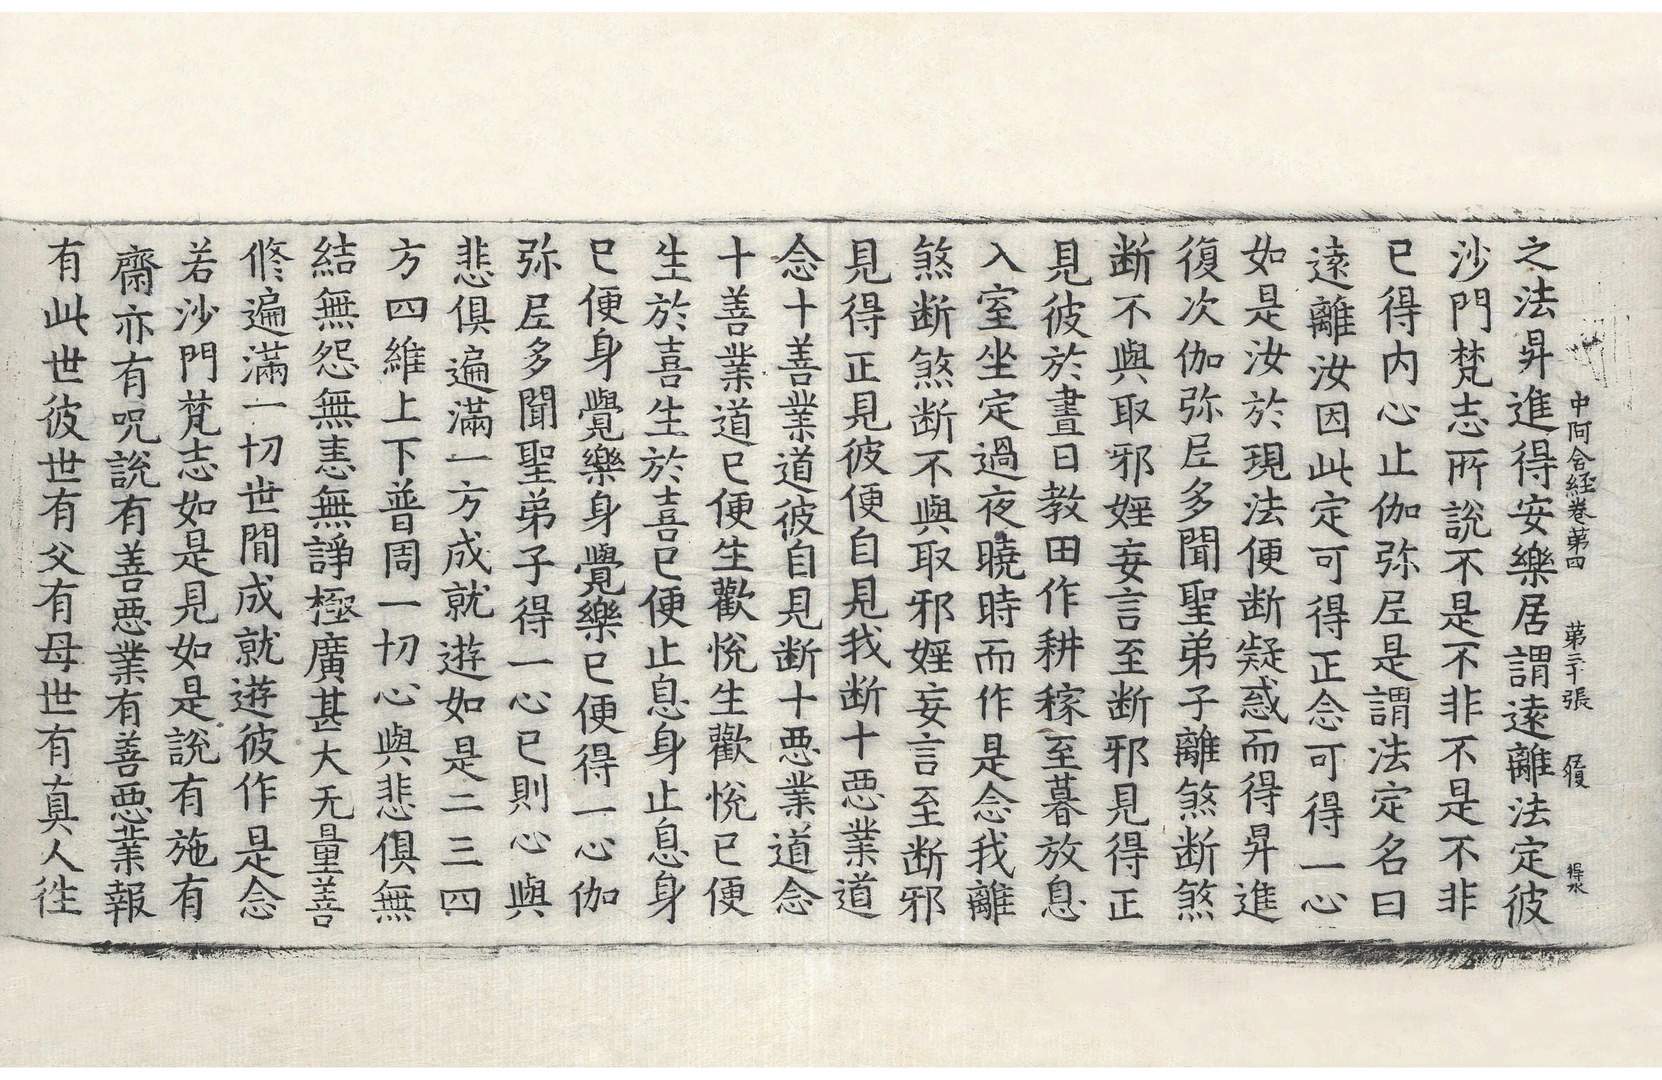 中阿含經卷第四 第三十張 履 得水
之法昇進得安樂居謂遠離法定彼
沙門梵志所說不是不非不是不非
已得內心止伽弥尼是謂法定名曰
遠離汝因此定可得正念可得一心
如是汝於現法便断疑惑而得昇進
復次伽弥尼多聞聖弟子離煞断煞
断不與取邪婬妄言至断邪見得正
見彼於晝日教田作耕稼至暮放息
入室坐定過夜曉時而作是念我離
煞断煞断不與取邪婬妄言至断邪
見得正見彼便自見我断十惡業道
念十善業道彼自見断十惡業道念
十善業道已便生歡悅生歡悅已便
生於喜生於喜已便止息身止息身
已便身覺樂身覺樂已便得一心伽
弥尼多聞聖弟子得一心已則心與
悲俱遍滿一方成就遊如是二三四
方四維上下普周一切心與悲俱無
結無怨無恚無諍極廣甚大无量善
修遍滿一切世間成就遊彼作是念
若沙門梵志如是見如是說有施有
齋亦有呪說有善惡業有善惡業報
有此世彼世有父有母世有真人往